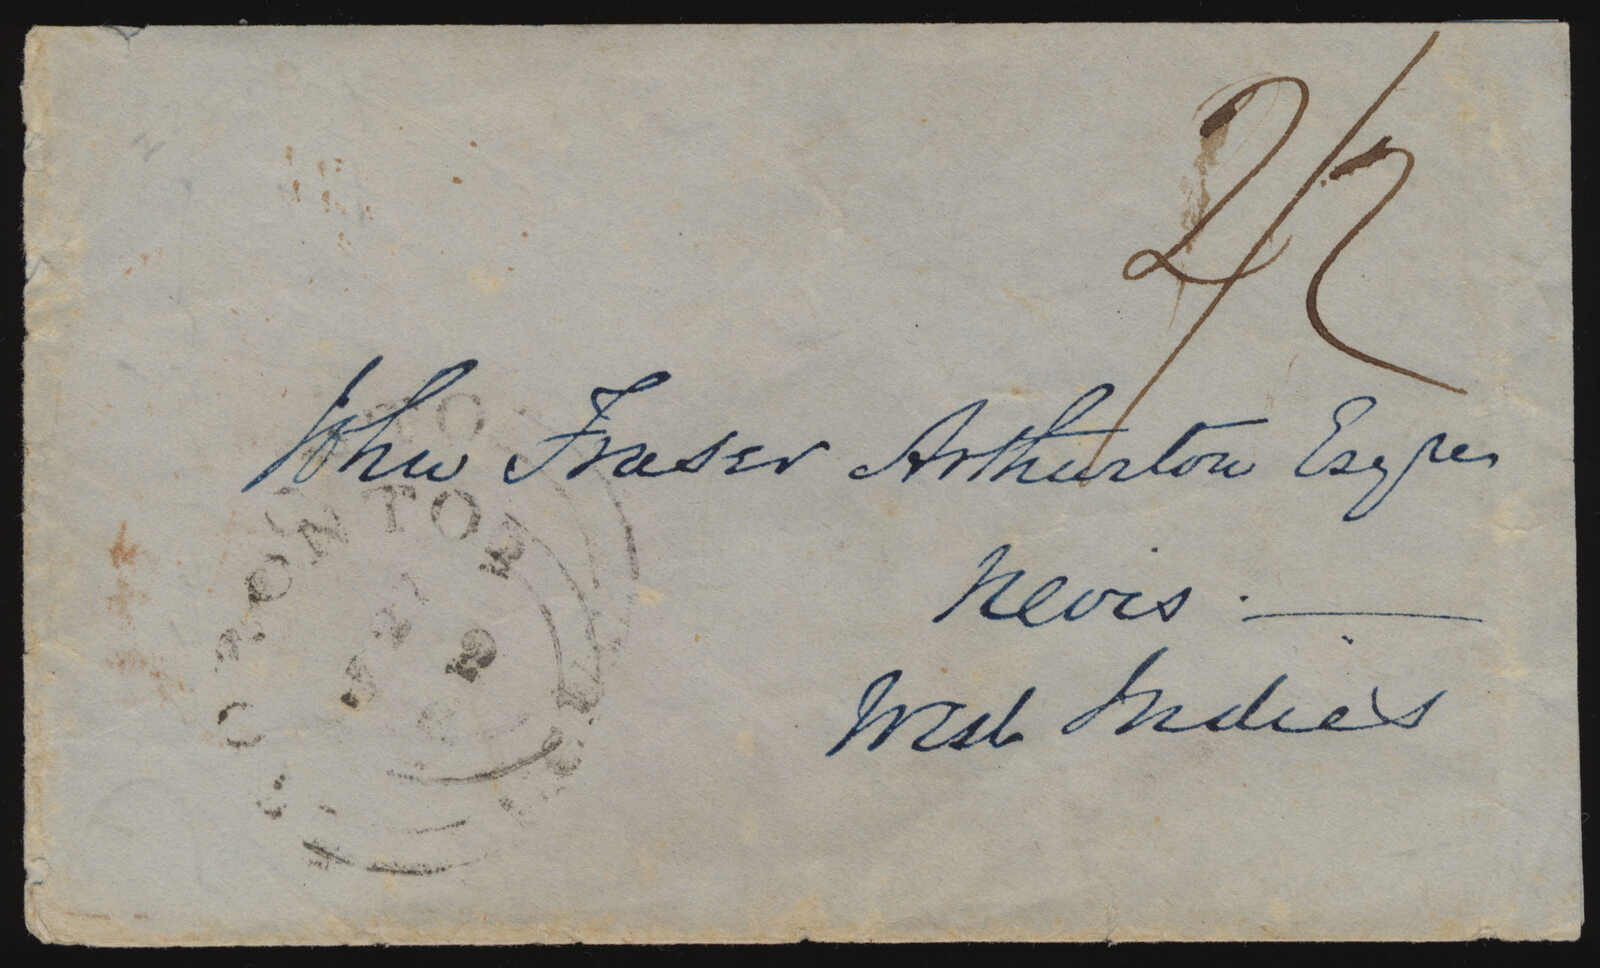 2/2
John Fraser Arthurton Esqre
Nevis.
West Indies
TORONTO
21
2